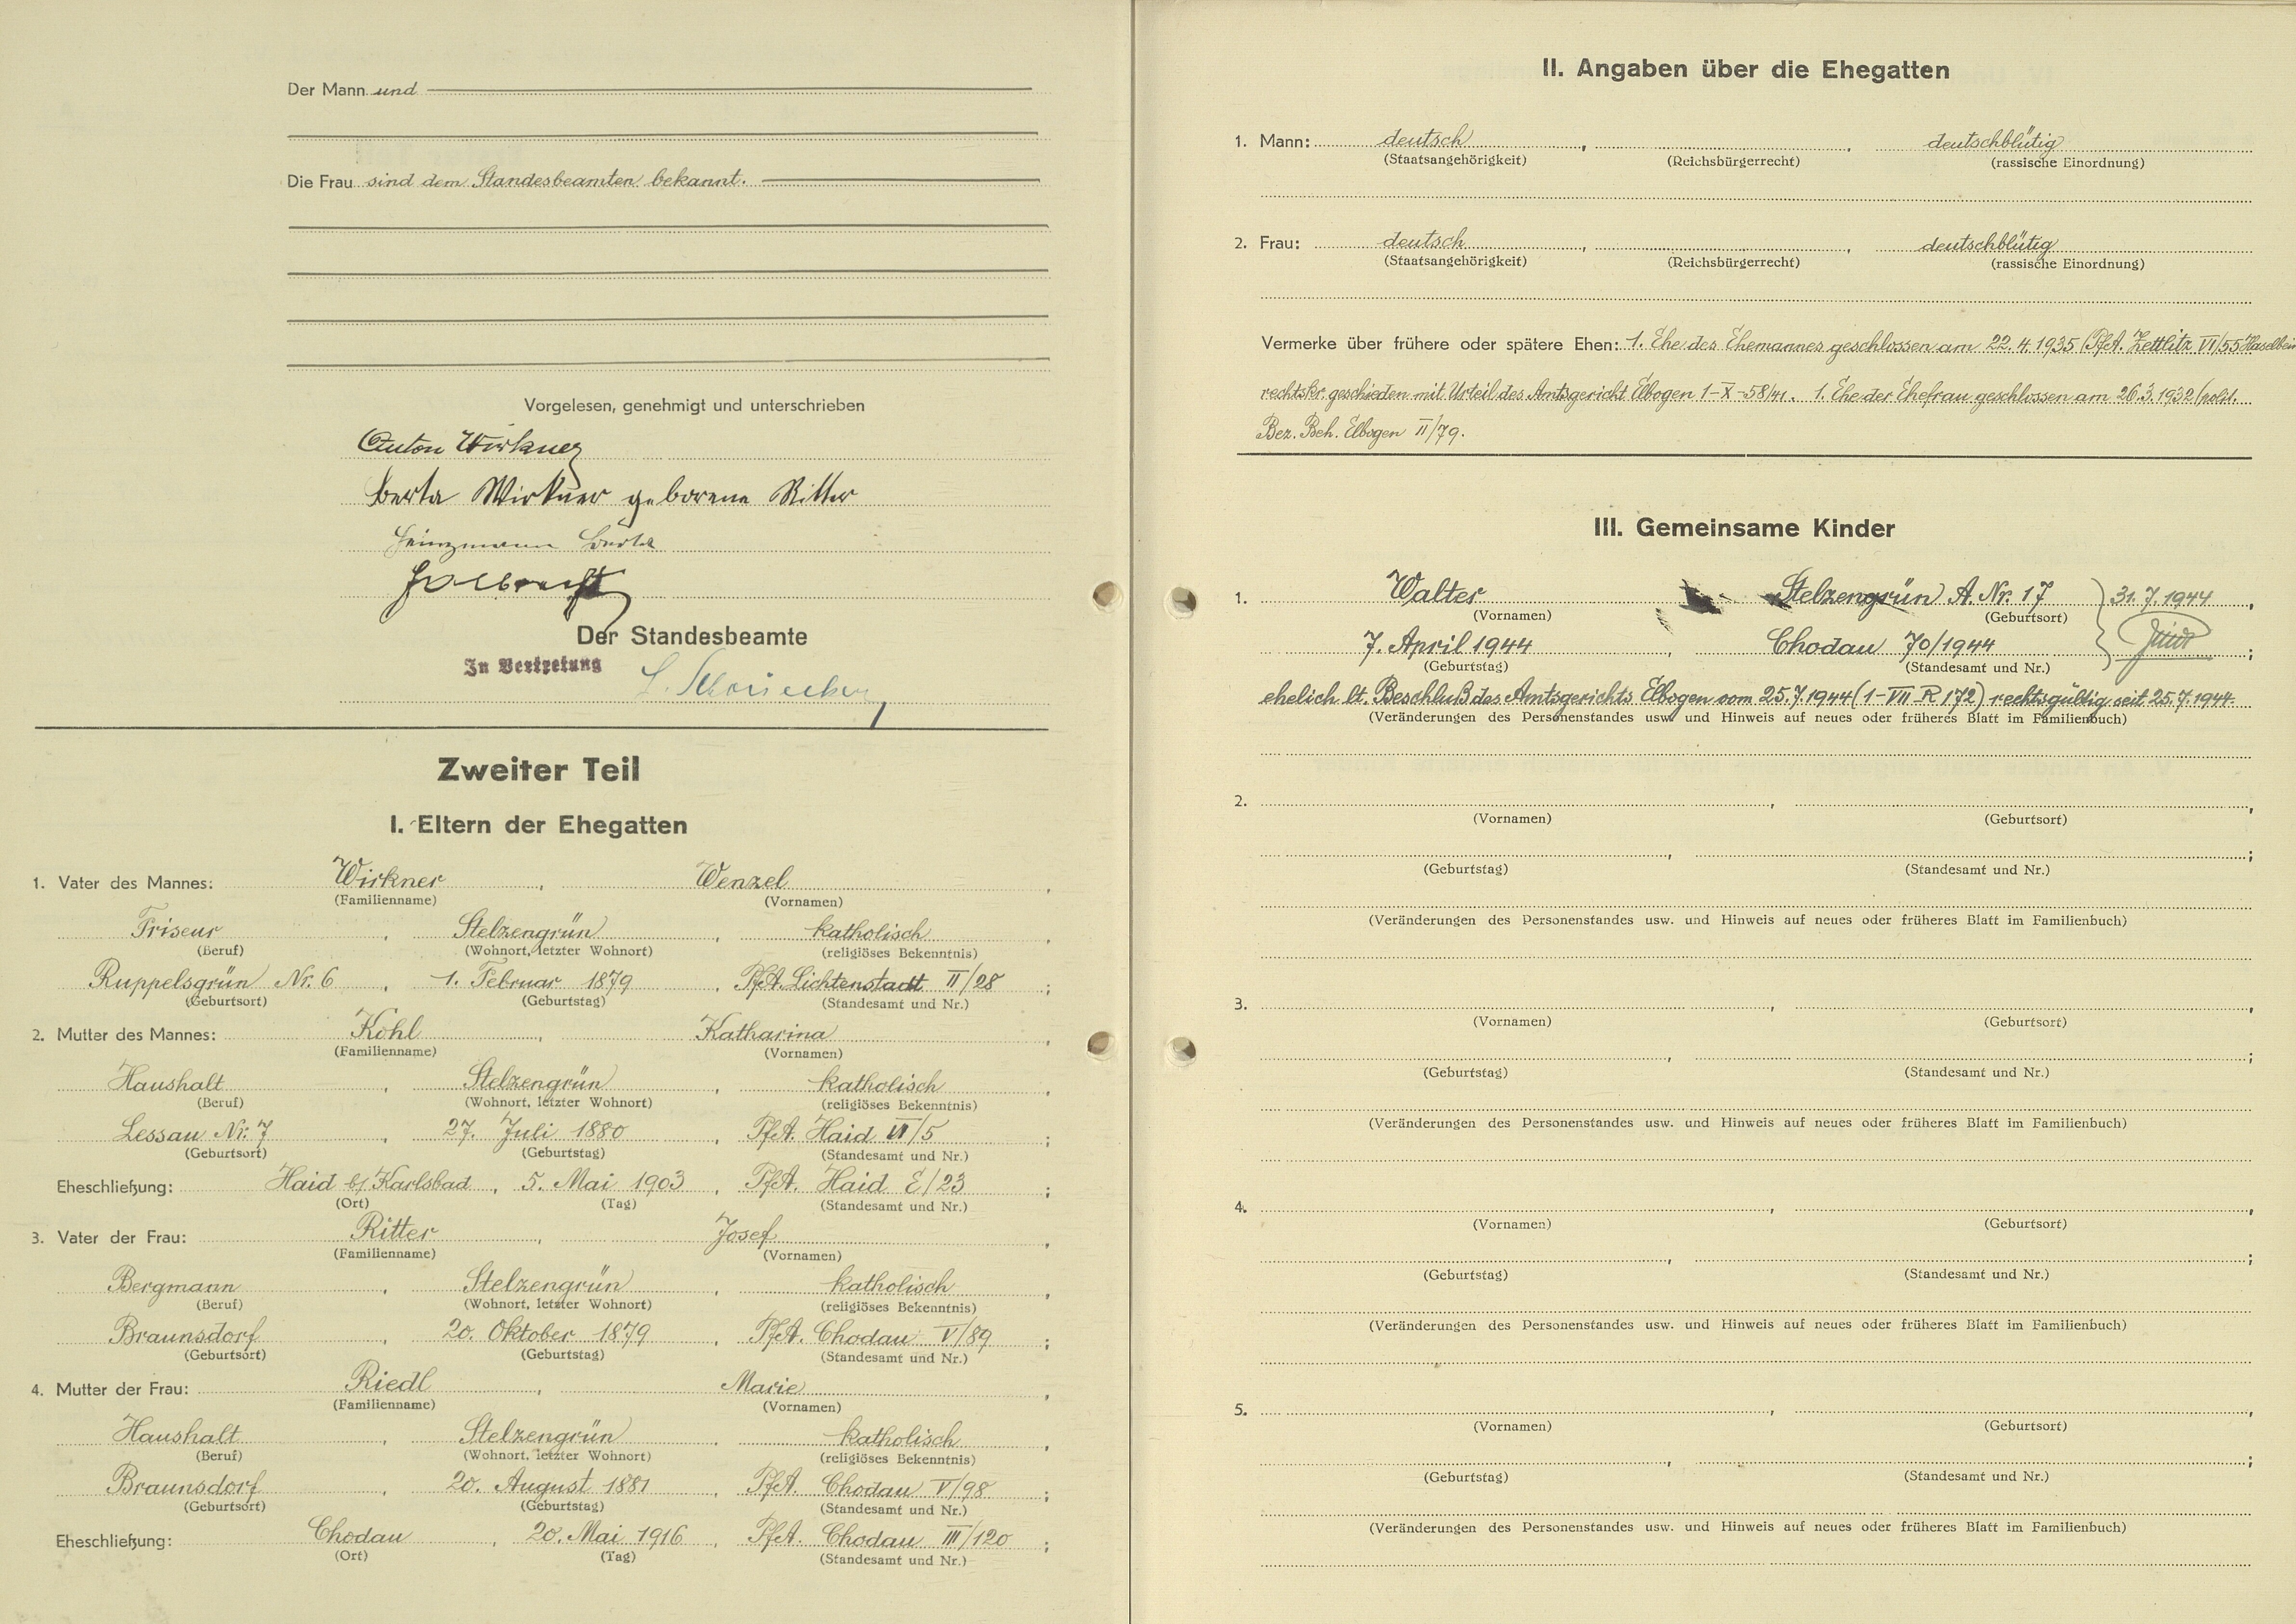 Der Mann und
Die Frau sind dem Standesbeamten bekannt.
Vorgelesen, genehmigt und unterschrieben
Anton Wirkner
Berta Wirkner geborene Ritter
Heinzmann Berta
Der Standesbeamte
In Vertretung
Zweiter Teil
I. Eltern der Ehegatten
1. Vater des Mannes: Wirkner, Wenzel,
(Familienname) (Vornamen)
Friseur, Stelzengrün, katholisch,
(Beruf) (Wohnort, letzter Wohnort) (religiöses Bekenntnis)
Ruppelsgrün Nr. 6, 1. Februar 1879, PfA. Lichtenstadt II/28;
(Geburtsort) (Geburtstag) (Standesamt und Nr.)
2. Mutter des Mannes: Kohl, Katharina,
(Familienname) (Vornamen)
Haushalt, Stelzengrün, katholisch,
(Beruf) (Wohnort, letzter Wohnort) (religiöses Bekenntnis)
Lessau Nr. 7, 27. Juli 1880, PfA. Haid VI/5;
(Geburtsort) (Geburtstag) (Standesamt und Nr.)
Eheschließung: Haid b/Karlsbad, 5. Mai 1903, PfA. Haid E/23;
(Ort) (Tag) (Standesamt und Nr.)
3. Vater der Frau: Ritter, Josef,
(Familienname) (Vornamen)
Bergmann, Stelzengrün, katholisch,
(Beruf) (Wohnort, letzter Wohnort) (religiöses Bekenntnis)
Braunsdorf, 20. Oktober 1879, PfA. Chodau V/89;
(Geburtsort) (Geburtstag) (Standesamt und Nr.)
4. Mutter der Frau: Riedl, Marie,
(Familienname) (Vornamen)
Haushalt, Stelzengrün, katholisch,
(Beruf) (Wohnort, letzter Wohnort) (religiöses Bekenntnis)
Braunsdorf, 20. August 1881, PfA. Chodau V/98;
(Geburtsort) (Geburtstag) (Standesamt und Nr.)
Eheschließung: Chodau, 20. Mai 1916, PfA. Chodau III/120;
(Ort) (Tag) (Standesamt und Nr.)
II. Angaben über die Ehegatten
1. Mann: deutsch, , deutschblütig
(Staatsangehörigkeit) (Reichsbürgerrecht) (rassische Einordnung)
2. Frau: deutsch, , deutschblütig
(Staatsangehörigkeit) (Reichsbürgerrecht) (rassische Einordnung)
Vermerke über frühere oder spätere Ehen: 1. Ehe des Ehemannes geschlossen am 22.4.1935 (PfA. Zettlitz VI/55
rechtskr. geschieden mit Urteil des Amtsgericht Elbogen 1-X-58/41. 1. Ehe der Ehefrau geschlossen am 26.3.1932 (polit.
Bez. Beh. Elbogen II/79.
III. Gemeinsame Kinder
1. Walter Stelzengrün A. Nr. 17 31.7.1944,
(Vornamen) (Geburtsort)
7. April 1944, Chodau 70/1944;
(Geburtstag) (Standesamt und Nr.)
ehelich lt. Beschluß des Amtsgerichts Elbogen vom 25.7.1944 (1-VII-R 172) rechtsgültig seit 25.7.1944.
(Veränderungen des Personenstandes usw. und Hinweis auf neues oder früheres Blatt im Familienbuch)
2. , ,
(Vornamen) (Geburtsort)
, ;
(Geburtstag) (Standesamt und Nr.)
(Veränderungen des Personenstandes usw. und Hinweis auf neues oder früheres Blatt im Familienbuch)
3. , ,
(Vornamen) (Geburtsort)
, ;
(Geburtstag) (Standesamt und Nr.)
(Veränderungen des Personenstandes usw. und Hinweis auf neues oder früheres Blatt im Familienbuch)
4. , ,
(Vornamen) (Geburtsort)
, ;
(Geburtstag) (Standesamt und Nr.)
(Veränderungen des Personenstandes usw. und Hinweis auf neues oder früheres Blatt im Familienbuch)
5. , ,
(Vornamen) (Geburtsort)
, ;
(Geburtstag) (Standesamt und Nr.)
(Veränderungen des Personenstandes usw. und Hinweis auf neues oder früheres Blatt im Familienbuch)